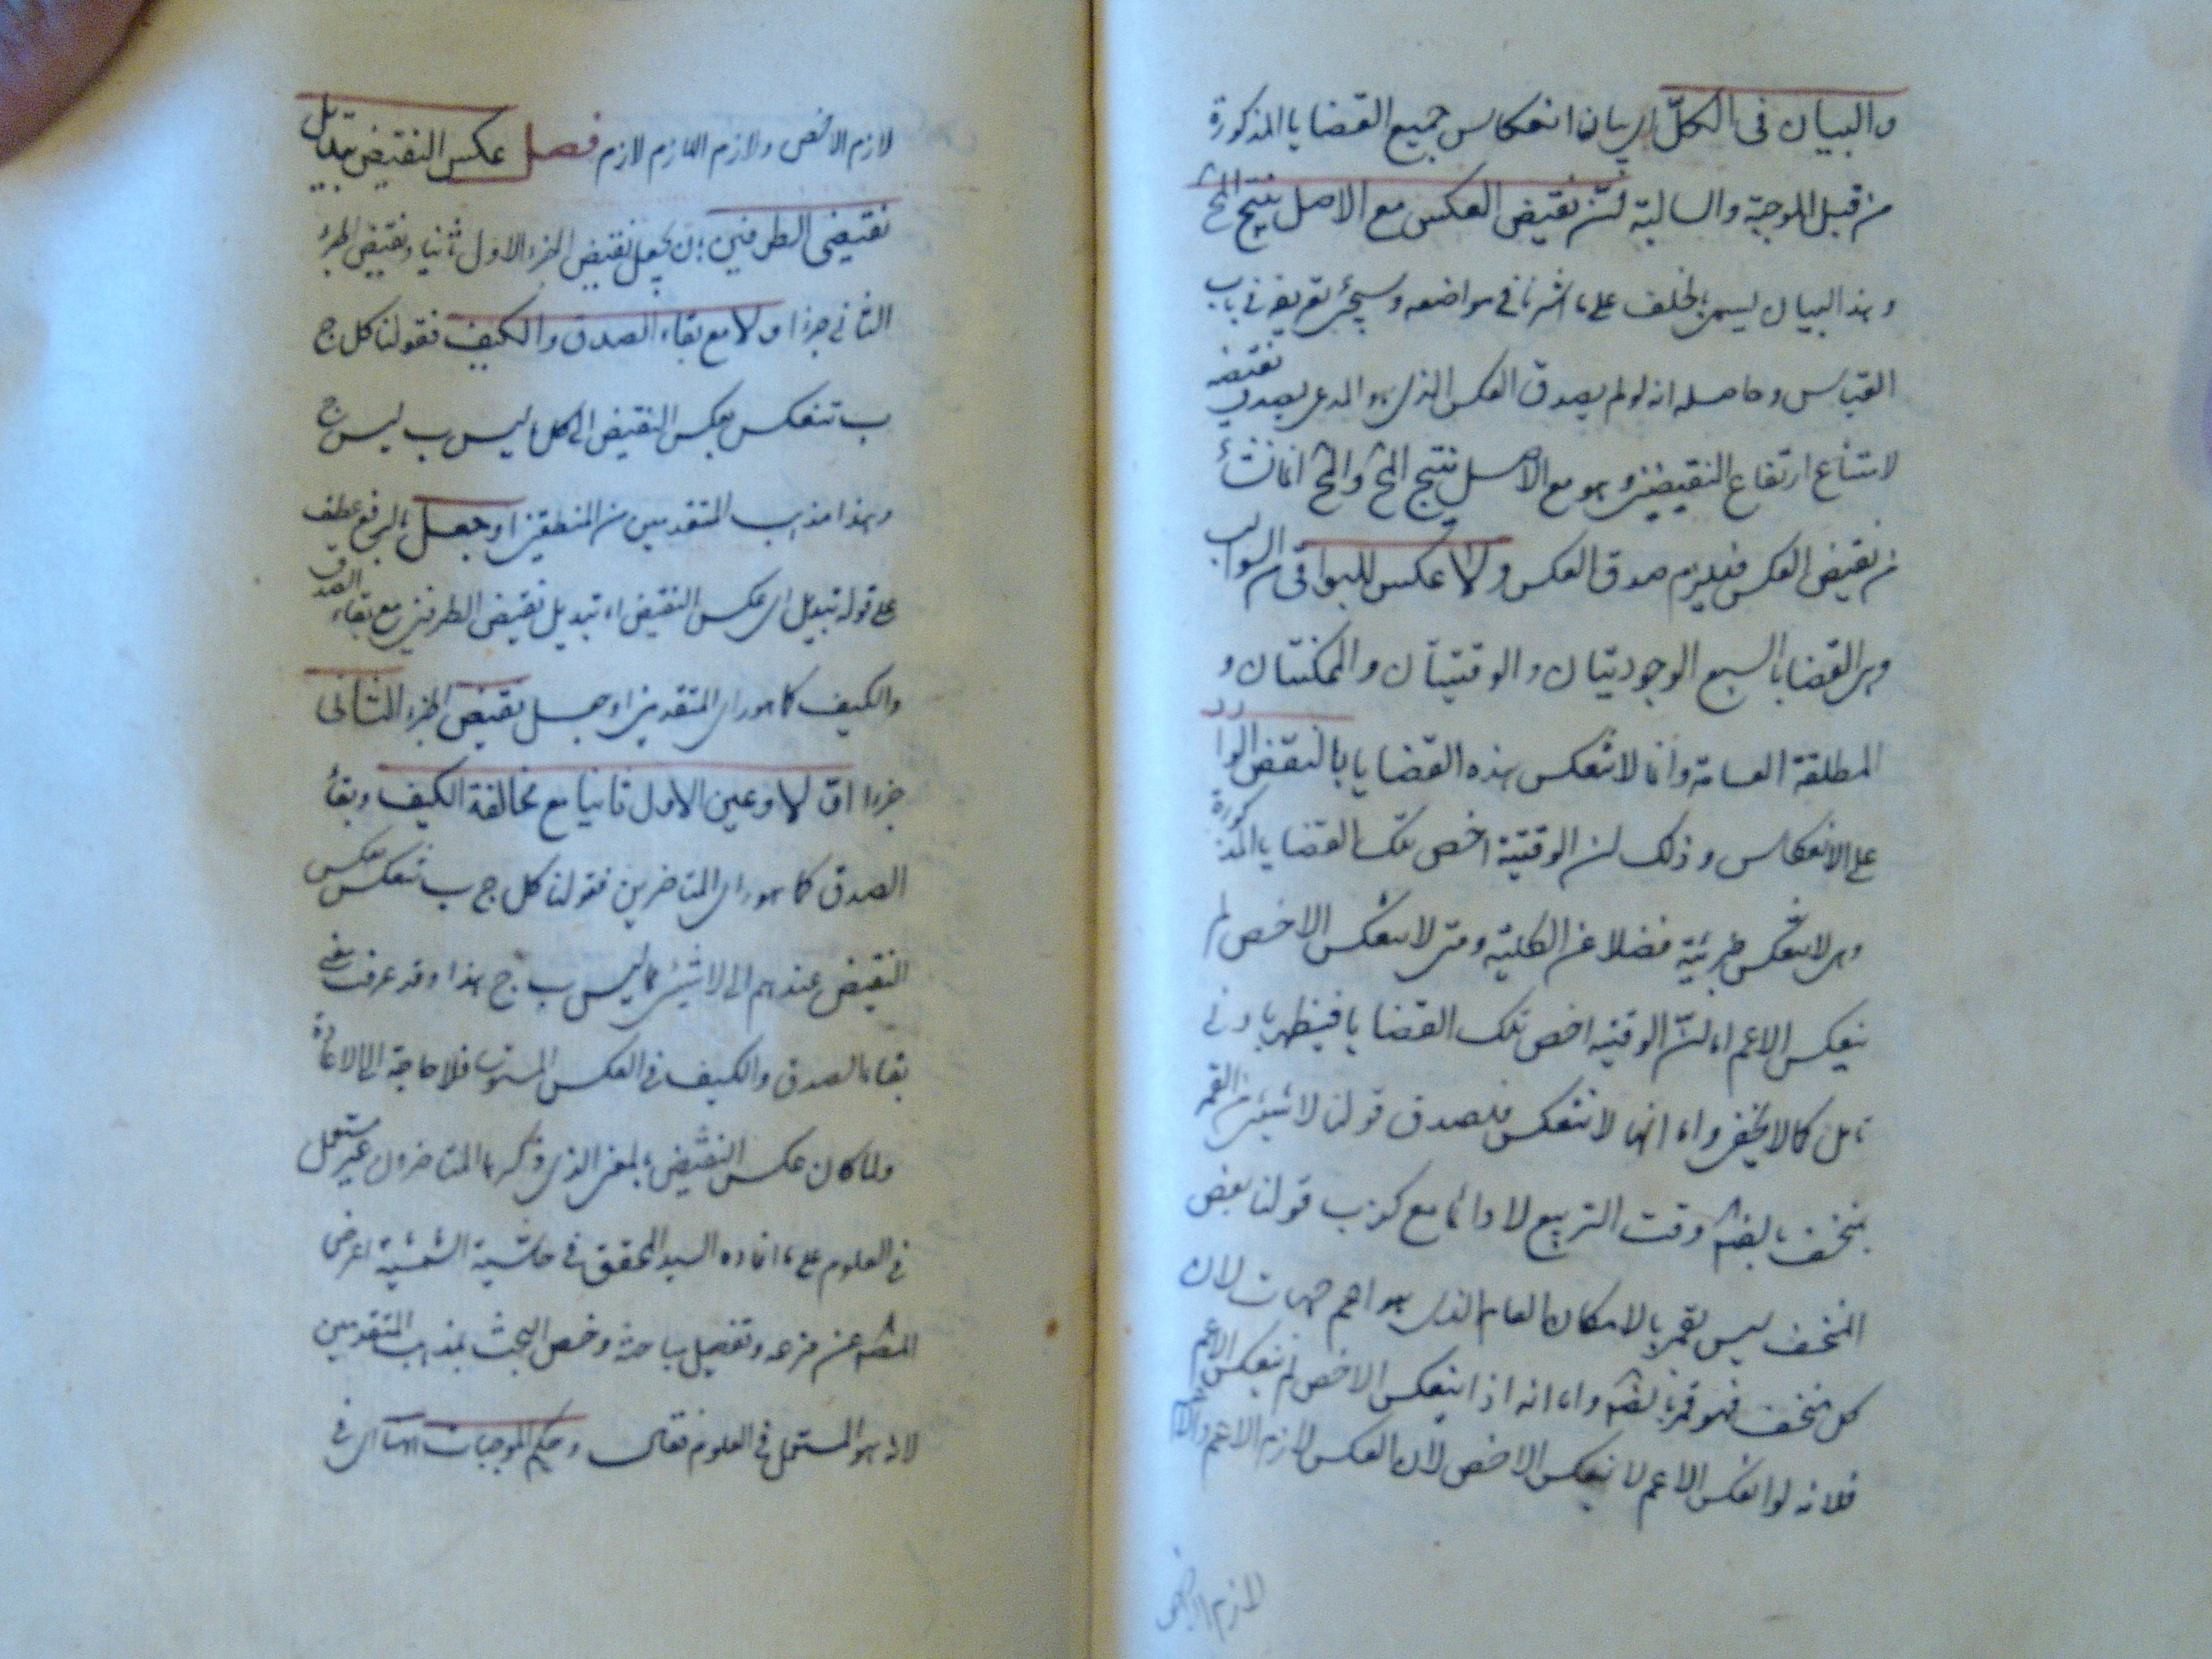 والبيان فى الكلّ اى بيان انعكاس جميع القضايا المذكورة
من قبل الموجبة والسالبة لانّ نقيض العكس مع الاصل ينتج المح
وهذا البيان يسمى بالخلف على ما اشرنا فى مواضعه وسيجئ تعريفه فى باب
القياس وحاصله انه لو لم يصدق العكس الذى هو المدعى يصدق نقيضه
لامتناع ارتفاع النقيضين وهو مع الاصل ينتج المح والمح انما نشأ
من نقيض العكس فيلزم صدق العكس ولا عكس للبواقى من السوالب
وهى القضايا السبع الوجوديتان والوقتيتان والممكنتان و
المطلقة العامة وانما لا تنعكس هذه القضايا بالنقض الوارد
على الانعكاس وذلك لان الوقتية اخص تلك القضايا المذكورة
وهى لا تنعكس جزئية فضلا عن الكلية ومتى لا ينعكس الاخص لم
ينعكس الاعم اما انّ الوقتية اخص تلك القضايا فيظهر بادنى
تامل كما لا يخفى واما انها لا تنعكس فلصدق قولنا لا شيئ من القمر
بمنخسف بالضرورة وقت التربيع لا دائما مع كذب قولنا بعض
المنخسف ليس بقمر بالامكان العام الذى هو اعم جهات لان
كل منخسف فهو قمر بالضرورة واما انه اذا لم ينعكس الاخص لم ينعكس الاعم
فلانه لو انعكس الاعم لانعكس الاخص لان العكس لازم الاعم
لازم الاخص
لازم الاخص ولازم اللازم لازم فصل عكس النقيض تبديل
نقيضى الطرفين بان يجعل نقيض الجزء الاول ثانيا ونقيض الجزء
الثانى جزءا اولا مع بقاء الصدق والكيف فقولنا كل ج
ب تنعكس بعكس النقيض الى كل ما ليس ب ليس ج
وهذا مذهب المتقدمين من المنطقيين او جعل بالرفع عطف
على قوله تبديل اى عكس النقيض اما تبديل نقيض الطرفين مع بقاء الصدق
والكيف كما هو راى المتقدمين او جعل نقيض الجزء الثانى
جزءا اولا وعين الاول ثانيا مع مخالفة الكيف وبقاء
الصدق كما هو راى المتاخرين فقولنا كل ج ب تنعكس بعكس
النقيض عندهم الى لا شيئ مما ليس ب ج هذا وقد عرفت معنى
بقاء الصدق والكيف فى العكس المستوى فلا حاجة الى الاعادة
ولما كان عكس النقيض بالمعنى الذى ذكره المتاخرون غير مستعمل
فى العلوم على ما افاده السيد المحقق فى حاشية الشمسية اعرض
المصنف عن وتفصيل مباحثه وخص البحث بمذهب المتقدمين
لانه هو المستعمل فى العلوم فقال وحكم الموجبات ههنا اى فى